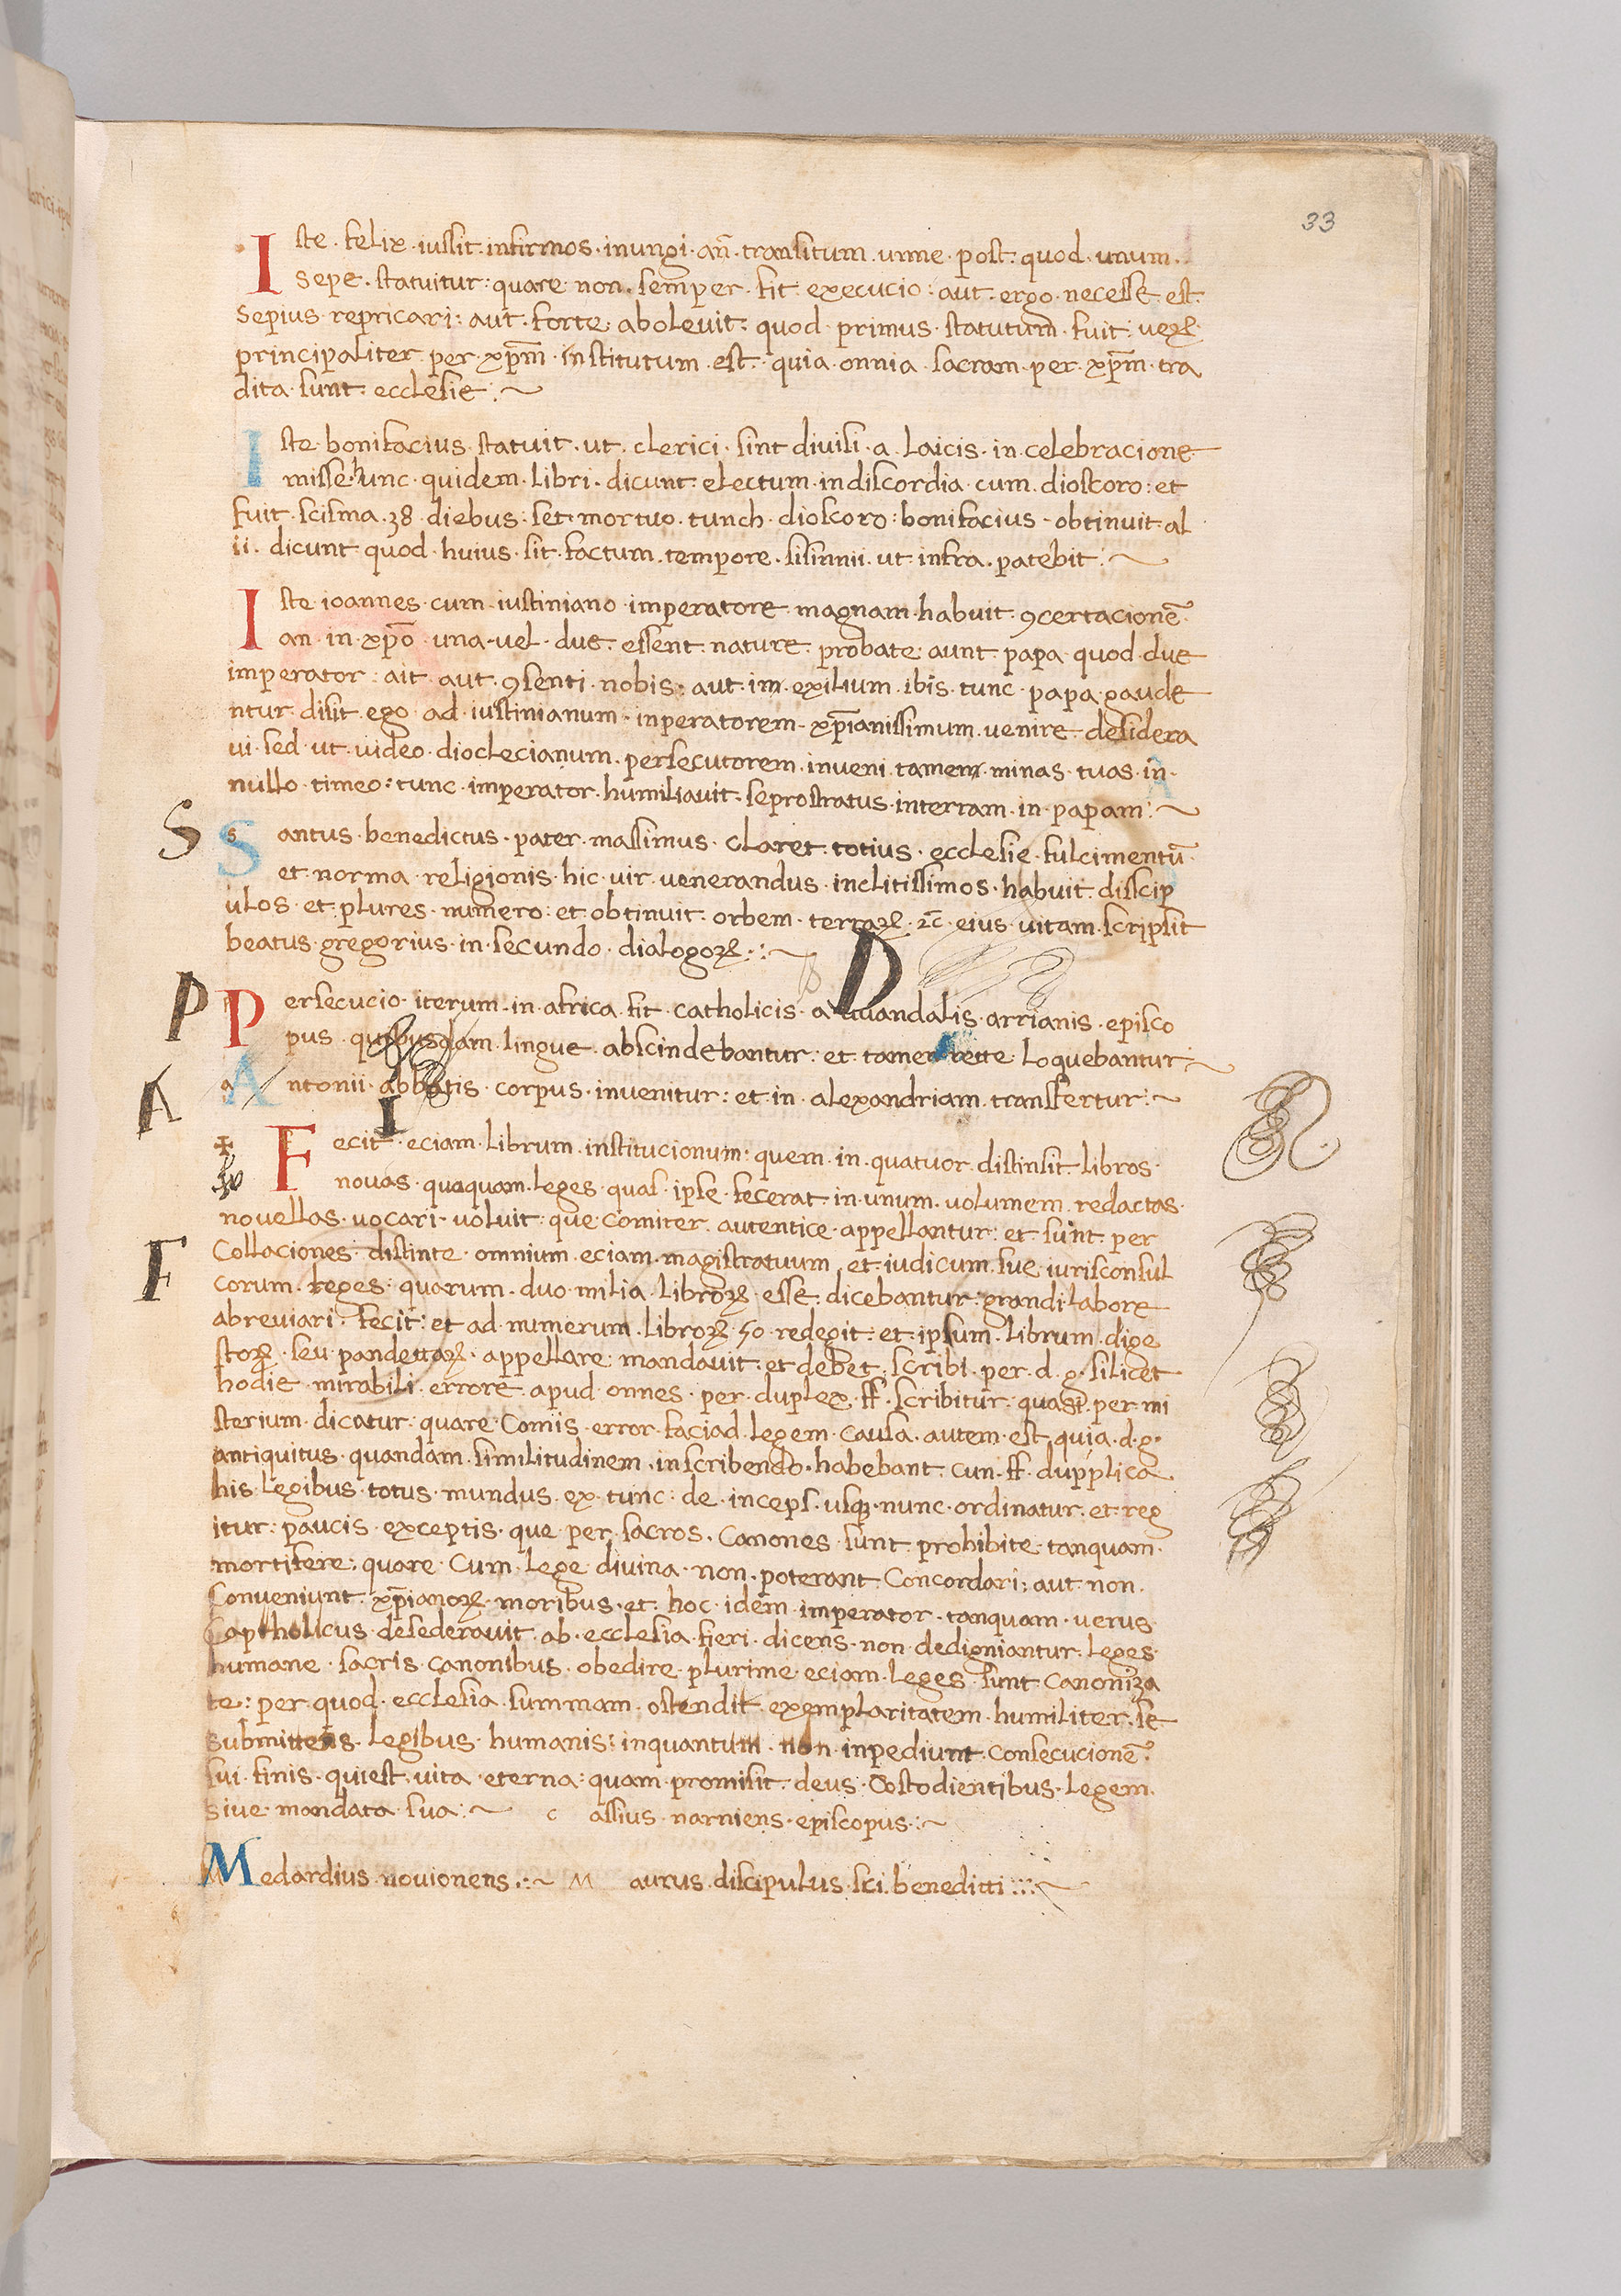 33
Iste · felix · iussit · infirmos · inungi · an̄ · transitum · unne · post · quod · unum ·
sepe · statuitur : quare · non · semper · fit · execucio : aut · ergo · necesse · est ·
Sepius · repricari : aut · forte · abolevit : quod · primus · statutum · fuit : ueꝝ ·
principaliter · per · xp̄m̄ · institutum · est · quia · onnia · sacram · per · xp̄m̄ · tra
dita · sunt · ecclesie : ~
Iste · bonifacius · statuit · ut · clerici · sint divisi · a · laicis · in · celebracione
misse · hunc · quidem · libri · dicunt · electum · in discordia · cum · dioscoro : et
fuit · scisma · 38 · diebus : set · mortuo · tunch · dioscoro : bonifacius · obtinuit · al
ii · dicunt · quod · huius · sit · factum · tempore · sisinnii · ut · infra · patebit : ~
Iste · ioannes · cum · iustiniano · imperatore · magnam · habuit · ꝯcertacionē ·
an · in · xp̄o · una · vel · due · essent · nature · probate · aunt · papa · quod · due
imperator · ait · aut · ꝯsenti · nobis : aut · im · exilium · ibis · tunc · papa · gaude
ntur · disit · ego · ad · iustinianum · inperatorem · xp̄ianissimum · venire · desidera
vi · sed · ut · uideo · dioclecianum · persecutorem · inveni · tamem · minas · tuas · in ·
nullo · timeo : tunc · imperator · humiliavit · se prostratus · in terram · in · papam : ~
S Santus · benedictus · pater · massimus · claret · totius · ecclesie · fulcimentū ·
et · norma · religionis · hic · uir · uenerandus · inclitissimos · habuit · disscip
ulos · et · plures · numero : et · obtinuit · orbem · terraꝝ · ⁊c̄ · eius · uitam · scripsit
beatus · gregorius · in · secundo · dialogoꝝ : · ~
D
P Persecucio · iterum · in · africa · fit · catholicis · a · uuandalis · arrianis · episco
pus · quibusdam · lingue · abscindebantur : et · tamen · rette · loquebantur : ~
A Antonii · abbatis · corpus · invenitur : et · in · alexandriam · transfertur : ~
I
Fecit · eciam · librum · institucionum : quem · in · quatuor · distinsit · libros ·
novas · quaquam · leges · quas · ipse · fecerat · in · unum · volumem · redactas ·
novellas · vocari · voluit : que comiter · autentice · appellantur : et · sunt · per
F Collaciones · distinte · omnium · eciam · magistratuum · et · iudicum · sue · iurisconsul
corum · leges · quarum · duo · milia · libroꝝ · esse · dicebantur · grandi labore
abreviari · fecit : et · ad · numerum · libroꝝ · 50 · redegit : et · ipsum · librum · dige
stoꝝ · seu · pandettaꝝ · appellare · mandavit : et debet · scribi · per · d · g · silicet
hodie · mirabili · errore · apud · onnes · per · duplex · ff · scribitur · quasi · per · mi
sterium · dicatur : quare · Comis · error · faciad · legem · causa · autem · est · quia · d · g ·
antiquitus · quandam · similitudinem · in scribendo · habebant · cun · ff · dupplica ·
his · legibus · totus · mundus · ex · tunc : de · inceps · usqꝫ · nunc · ordinatur · et · reg
itur : paucis · exceptis · que · per · sacros · Canones · sunt · prohibite · tanquam ·
mortifere : quare · Cum · lege · divina · non · poterant · Concordari : aut · non ·
Conveniunt · xp̄ianoꝝ · moribus · et · hoc · idem · imperator · tanquam · verus ·
Captholicus · desederavit · ab · ecclesia · fieri · dicens · non · dedigniantur · leges ·
humane · sacris · canonibus · obedire · plurime · eciam · leges · sunt · canoniza
te : per · quod · ecclesia · summam · ostendit · exemplaritatem · humiliter · se
submittens · legibus · humanis : inquantum · non · inpediunt · consecucionē ·
sui · finis · qui est · vita · eterna : quam · promisit · deus · Costodientibus · legem ·
sive · mandata · sua : ~ c assius · narniens · episcopus : ~
Medardius · novionens : ~ M aurus · discipulus · sci · beneditti : : : ~